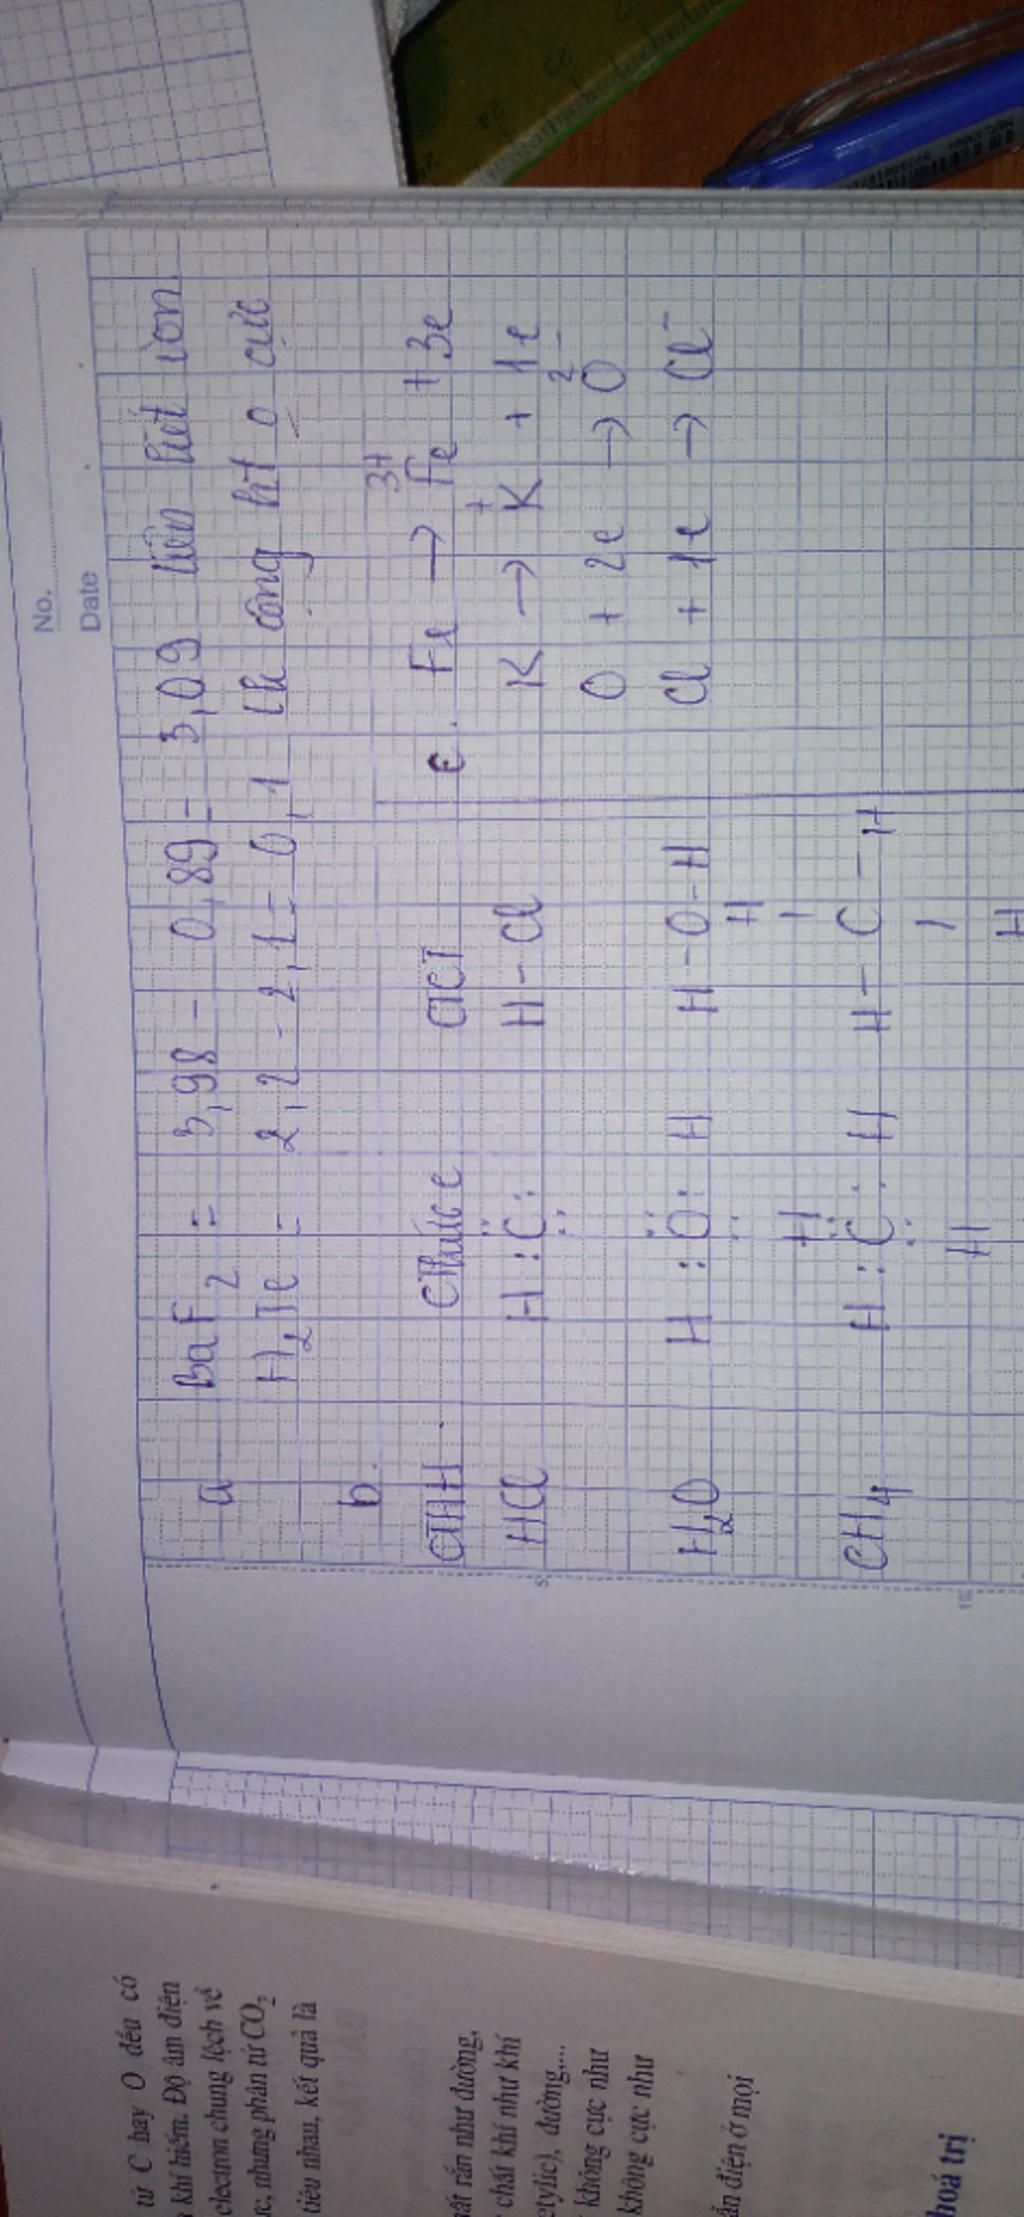 No.
Date
a BaF2 = 3,98 - 0,89 = 3,09 liên kết ion
H2Te = 2,2 - 2,1 = 0,1 lk cộng htị o cực
b.
CTPT CThức e CTCT
HCl H : C : H - Cl
H2O H : O : H H - O - H
CH4 H : C : H H - C - H
H H
H H
c. Fe → Fe3+ + 3e
K → K+ + 1e
O + 2e → O2-
Cl + 1e → Cl-
5
10
tử C hay O đều có
khí hiếm. Độ âm điện
electron chung lệch về
nhưng phân tử CO2
tiêu nhau, kết quả là
rắn như đường,
chất khí như khí
etylic), đường,...
không cực như
không cực như
điện ở mọi
hoá trị